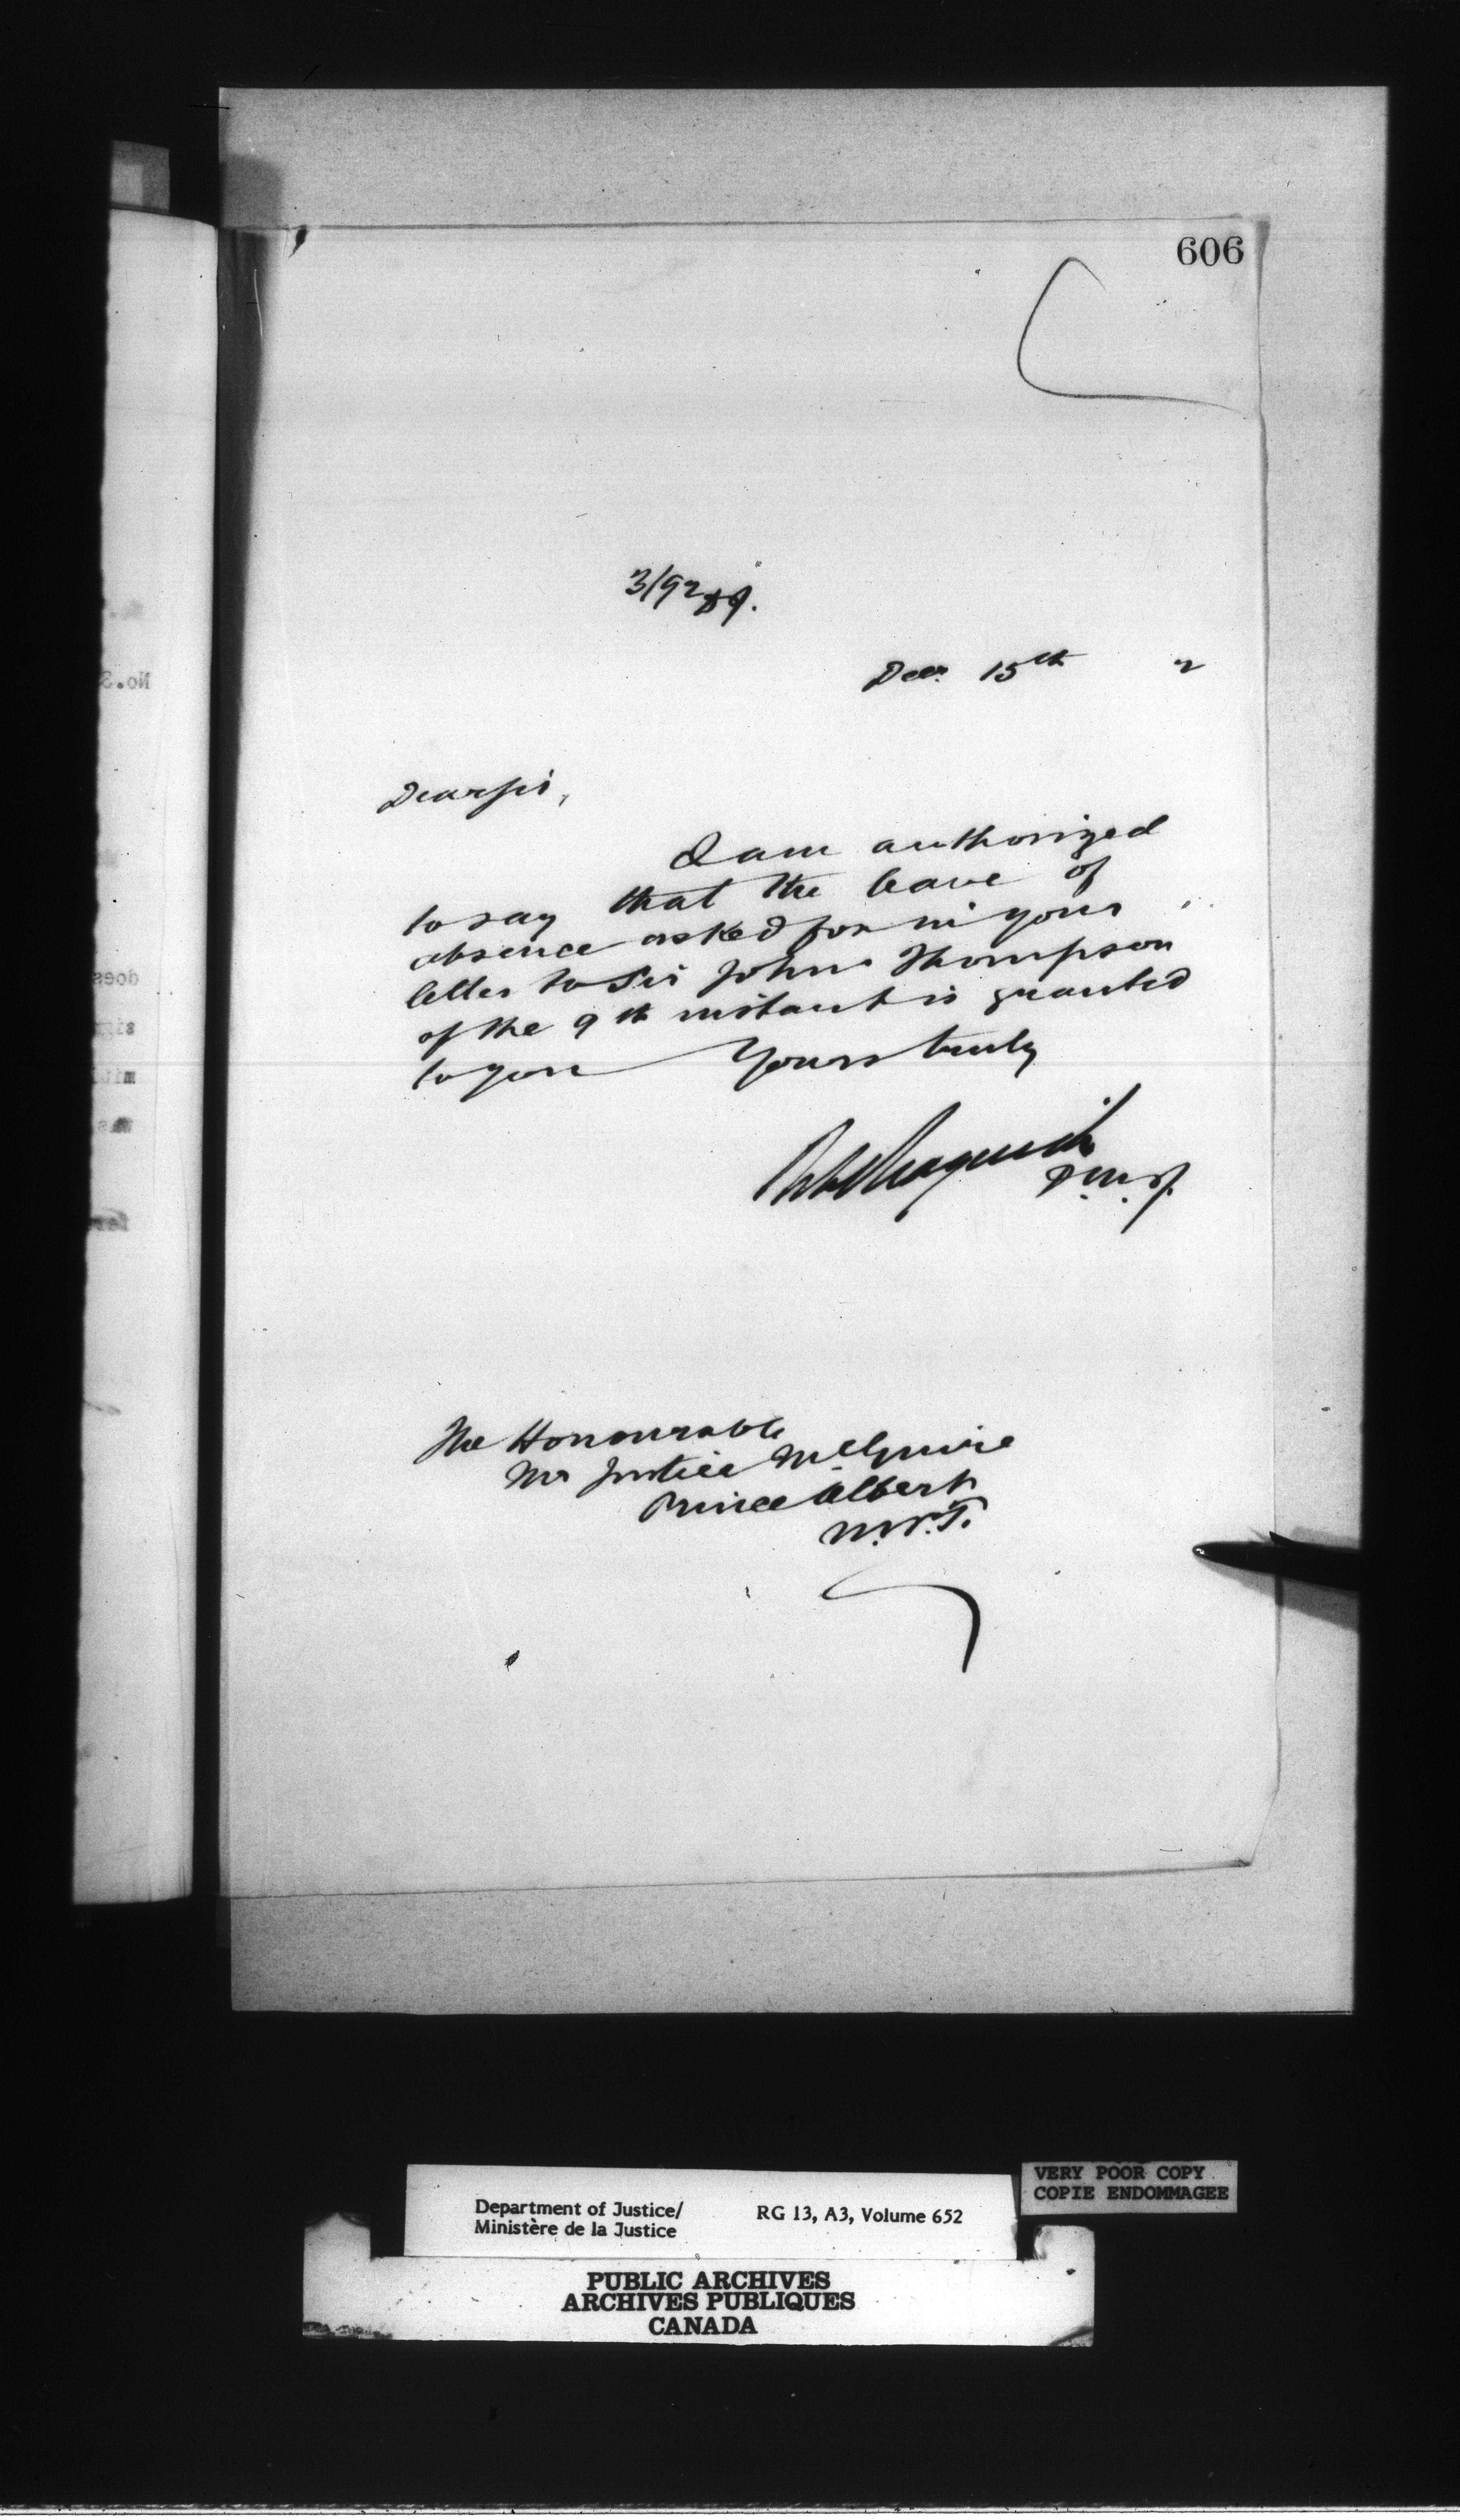 606
3/92
Decr 15th 2
Dear Sir,
I am authorized
to say that the leave of
absence asked for in your
letter to Sir John Thompson
of the 9th instant is granted
to you Yours truly
D.M.J.
The Honourable
Mr Justice McGuire
Prince Albert
N.W.T.
No.3
does
sig
mit
was
VERY POOR COPY
COPIE ENDOMMAGEE
Department of Justice/ RG 13, A3, Volume 652
Ministère de la Justice
PUBLIC ARCHIVES
ARCHIVES PUBLIQUES
CANADA